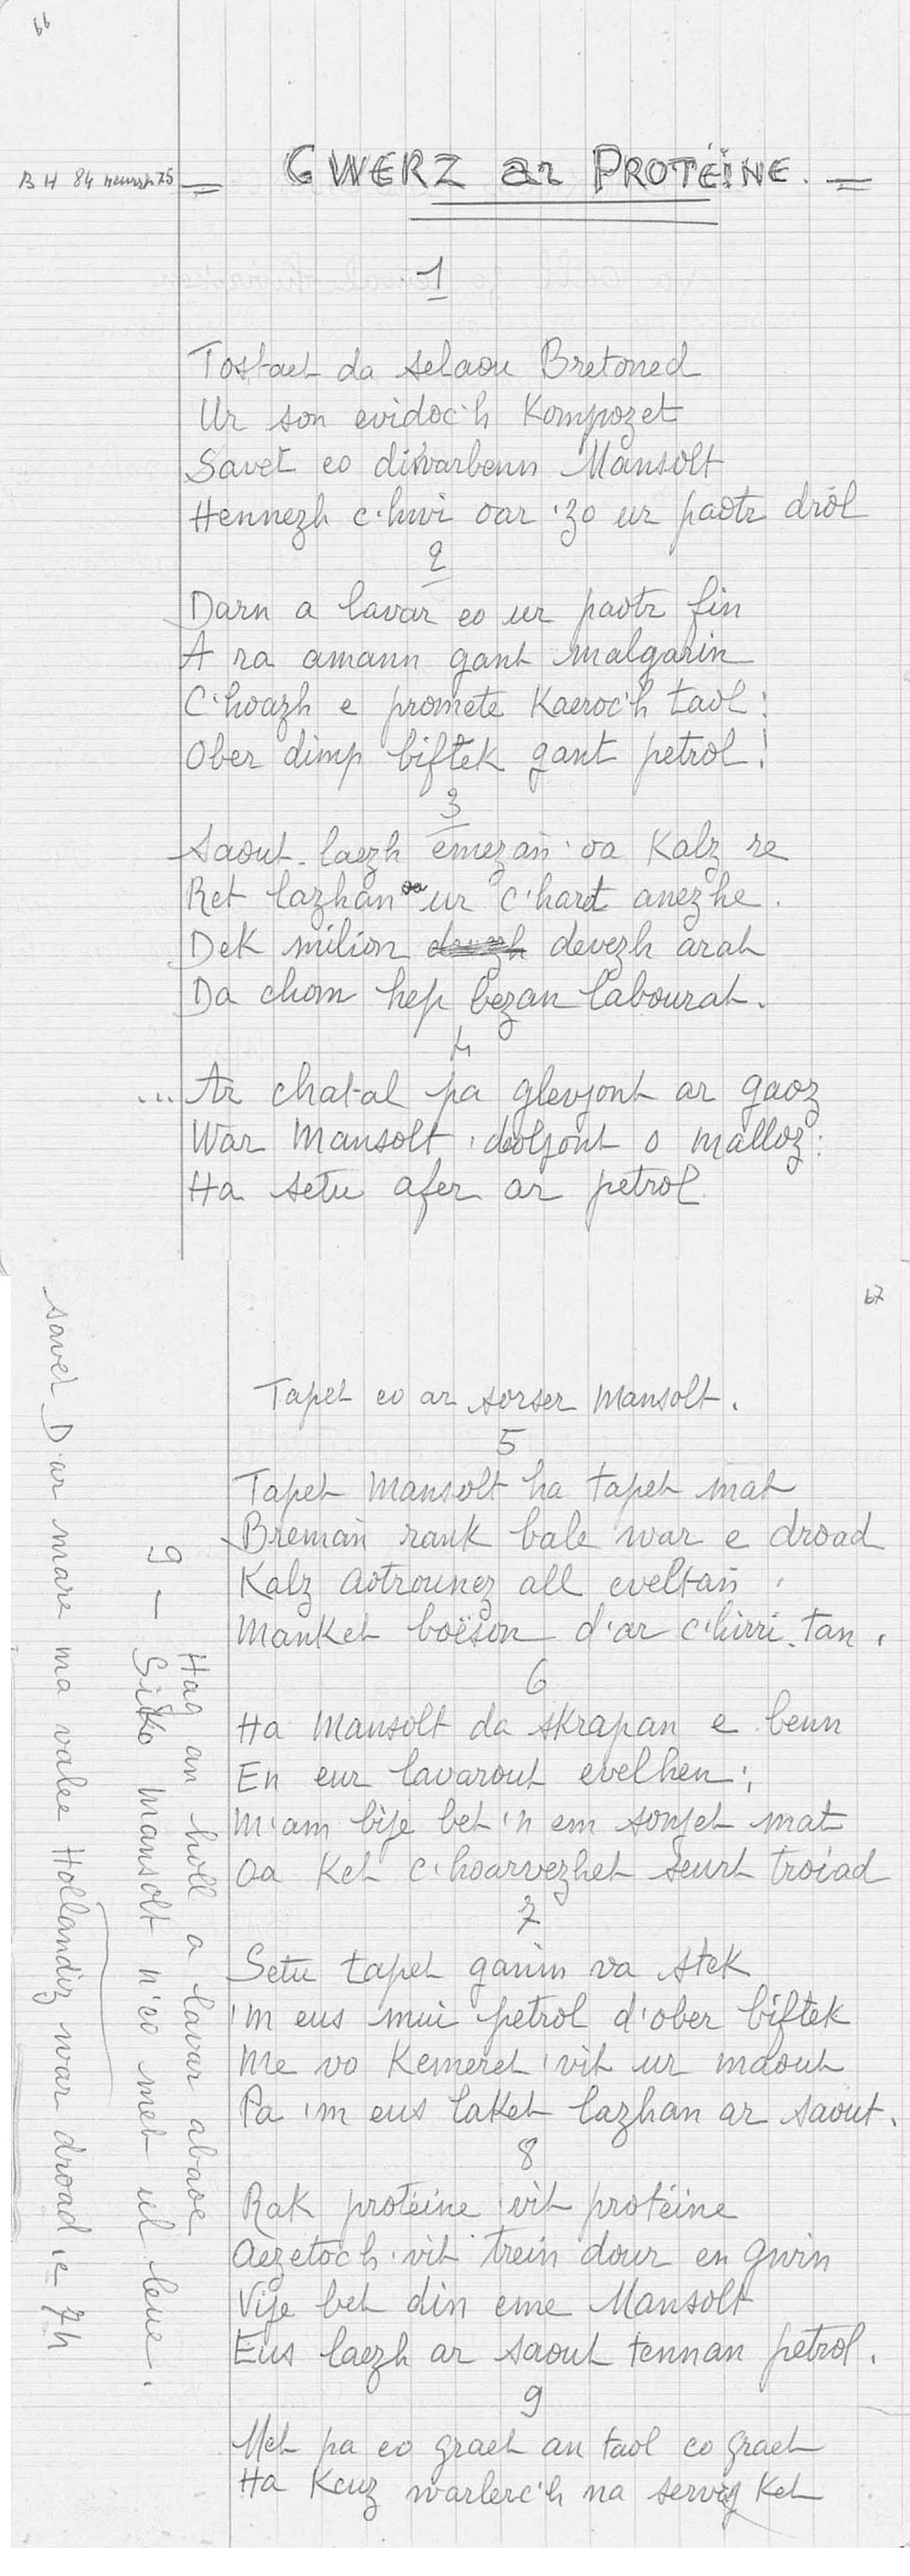 66
BH 84 meurzh 75
= GWERZ ar PROTÉINE. =
1
Tostaet da selaou Bretoned
Ur son evidoc'h Kompozet
Savet eo diwarbenn Mansolt
Hennezh c'hwi oar 'zo ur paotr dròl
2
Darn a lavar eo ur paotr fin
A ra amann gant malgarin
C'hoazh e promete Kaeroc'h taol :
Ober dimp biftek gant petrol !
3
Saout-laezh emezañ 'oa Kalz re
Ret lazhan oa ur c'hard anezhe.
Dek milion devezh arat
Da chom hep bezan labourat.
4
... Ar chatal pa glevjont ar gaoz
War Mansolt 'daoljont o malloz :
Ha setu afer ar petrol
67
Tapet eo ar sorser Mansolt.
5
Tapet Mansolt ha tapet mat
Breman rank bale war e droad
Kalz Aotrounez all eveltañ
Manket boëson d'ar c'hirri-tan.
6
Ha Mansolt da skrapan e benn
En eur lavarout evelhen :
M'am bije bet 'n em sonjet mat
Oa Ket c'hoarvezhet seurt troiad
7
Setu tapet ganin va stek
'm eus mui petrol d'ober biftek
Me vo Kemeret 'vit ur maout
Pa 'm eus laket lazhan ar saout.
8
Rak protéine 'vit protéine
Aezetoc'h 'vit trein dour en gwin
Vije bet din eme Mansolt
Eus laezh ar saout tennan petrol.
9
Met pa eo graet an taol eo graet
Ha Keuz warlerc'h na servij Ket
Hag an holl a lavar abaoe
9 - Siko Mansolt n'eo met ul leue.
savet D'ar mare ma valee Hollandiz war droad e 74